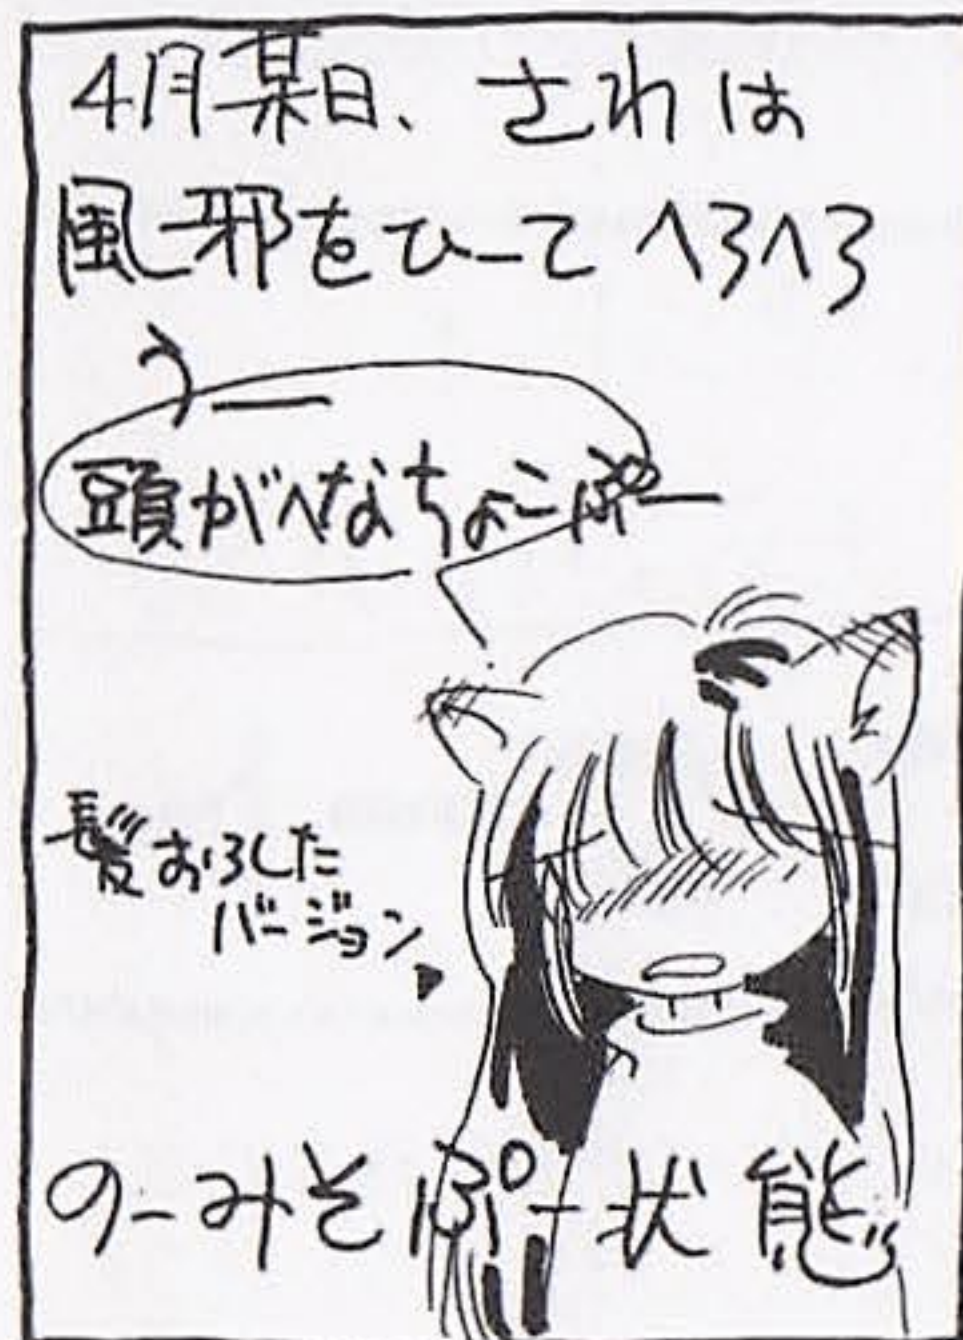 4月某日、されは
風邪をひーてへろへろ
うー
頭がへなちょこぷー
髪おろした
バージョン
のーみそぷー状態